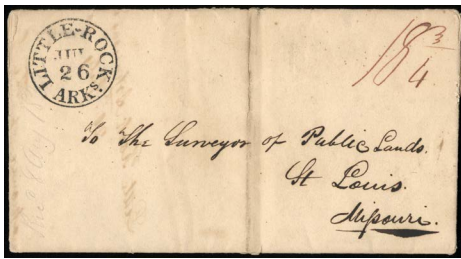 LITTLE-ROCK
JUL
26
ARKs
18 3/4
To The Surveyor of Public Lands.
St Louis.
Missouri.